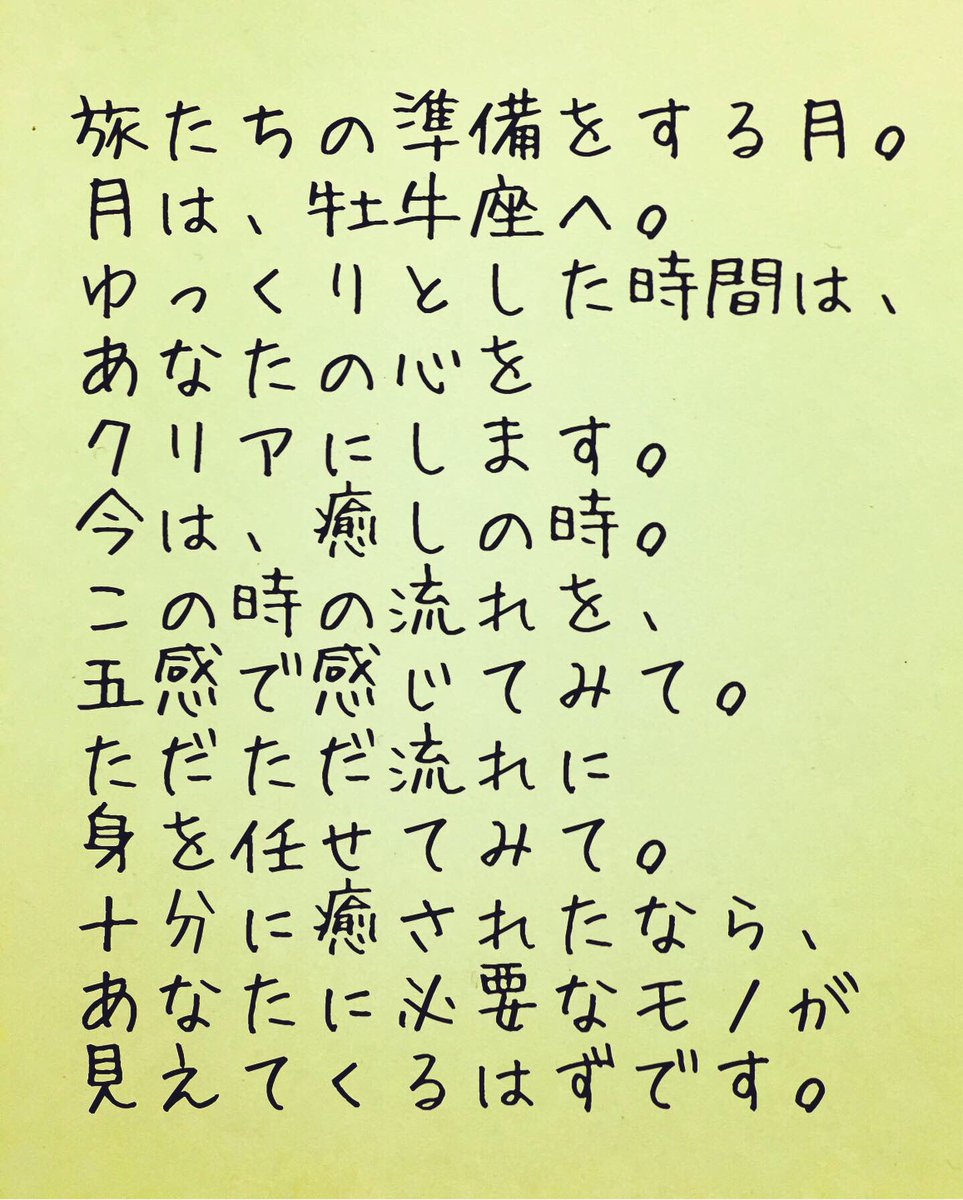 旅たちの準備をする月。
月は、牡牛座へ。
ゆっくりとした時間は、
あなたの心を
クリアにします。
今は、癒しの時。
この時の流れを、
五感で感じてみて。
ただただ流れに
身を任せてみて。
十分に癒されたなら、
あなたに必要なモノが
見えてくるはずです。